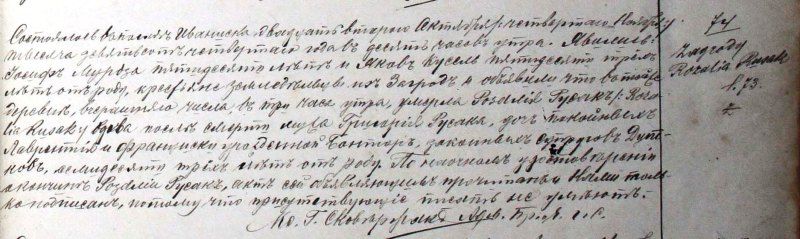 Состоялось въ посадѣ Иваниска двадцать втораго Октября /: четвертаго Ноября :/
тысяча девятьсотъ четвертаго года въ десять часовъ утра. Явились:
Іосифъ Мурдза пятидесяти лѣтъ и Яковъ пятидесяти трехъ
лѣтъ отъ роду, крестьяне земледѣльцы изъ Загродъ и объявили что въ той же
деревнѣ, вчерашняго числа въ три часа утра, умерла Розалія Русакъ /: Roza-
lia Rusak :/ вдова послѣ смерти мужа Григорія Русака, дочь покойныхъ
Лаврентія и Франциски урожденной законныхъ супруговъ
осьмидесяти трехъ лѣтъ отъ роду. По наочномъ удостовѣреніи
о кончинѣ Розаліи Русакъ, актъ сей объявляющимъ прочитанъ и Нами толь-
ко подписанъ, потому что присутствующіе писать не умѣютъ.
Кс. Г.
74
Zagrody
Rozalia Rusak
l. 73.